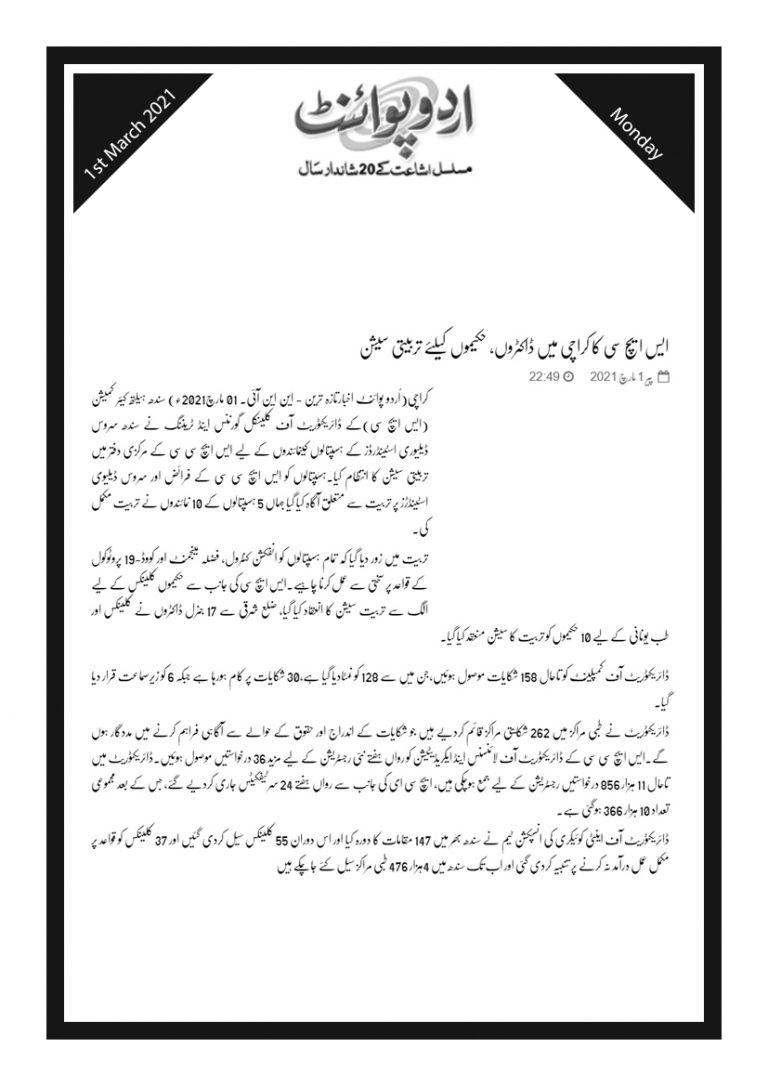 1st March 2021
Monday
اردوپوائنٹ
مسلسل اشاعت کے 20 شاندار سال
ایس ایچ سی کا کراچی میں ڈاکٹروں، حکیموں کیلئے تربیتی سیشن
پیر 1 مارچ 2021 22:49
کراچی(اُردو پوائنٹ اخبارتازہ ترین - این این آئی۔ 01 مارچ2021ء) سندھ ہیلتھ کیئر کمیشن
(ایس ایچ سی) کے ڈائریکٹوریٹ آف کلینکل گورننس اینڈ ٹریننگ نے سندھ سروس
ڈیلیوری اسٹینڈرڈز کے ہسپتالوں کینمائندوں کے لیے ایس ایچ سی سی کے مرکزی دفتر میں
تربیتی سیشن کا انتظام کیا۔ہسپتالوں کو ایس ایچ سی سی کے فرائض اور سروس ڈیلیوی
اسٹینڈرز پر تربیت سے متعلق آگاہ کیا گیا جہاں 5 ہسپتالوں کے 10 نمائندوں نے تربیت مکمل
کی۔
تربیت میں زور دیا گیا کہ تمام ہسپتالوں کو انفکشن کنٹرول، فضلہ مینجمنٹ اور کووڈ-19 پروٹوکول
کے قواعد پر سختی سے عمل کرنا چاہیے۔ایس ایچ سی کی جانب سے حکیموں کلینکس کے لیے
الگ سے تربیت سیشن کا انعقاد کیا گیا، ضلع شرقی سے 17 جنرل ڈاکٹروں نے کلینکس اور
طب یونانی کے لیے 10 حکیموں کو تربیت کا سیشن منعقد کیا گیا۔
ڈائریکٹوریٹ آف کمپلینٹ کو تاحال 158 شکایات موصول ہوئیں،جن میں سے 128 کو نمٹادیا گیا ہے،30 شکایات پر کام ہورہا ہے جبکہ 6 کو زیرسماعت قرار دیا
گیا۔
ڈائریکٹوریٹ نے طبی مراکز میں 262 شکایتی مراکز قائم کردیے ہیں جو شکایات کے اندراج اور حقوق کے حوالے سے آگاہی فراہم کرنے میں مددگار ہوں
گے۔ایس ایچ سی سی کے ڈائریکٹوریٹ آف لائسنس اینڈ ایکریڈیٹیکیشن کو رواں ہفتے نئی رجسٹریشن کے لیے مزید 36 درخواستیں موصول ہوئیں۔ڈائریکٹوریٹ میں
تاحال 11 ہزار 856 درخواستیں رجسٹریشن کے لیے جمع ہوچکی ہیں، ایچ سی ای کی جانب سے رواں ہفتے 24 سرٹیفکیٹس جاری کردیے گئے، جس کے بعد مجموعی
تعداد 10 ہزار 366 ہوگئی ہے۔
ڈائریکٹوریٹ آف اینٹی کوئیکری کی انسپکشن ٹیم نے سندھ بھر میں 147 مقامات کا دورہ کیا اور اس دوران 55 کلینکس سیل کردی گئیں اور 37 کلینکس کو قواعد پر
مکمل عمل درآمد نہ کرنے پر تنبیہ کردی گئی اور اب تک سندھ میں 4ہزار 476 طبی مراکز سیل کئے جاچکے ہیں